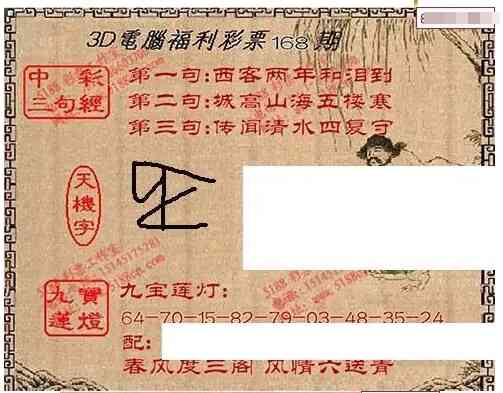 3D電腦福利彩票168期
中彩
三句經
第一句:西客两年和泪到
第二句:城高山海五楼寒
第三句:传闻清水四复守
天機字
九寶
蓮燈
九宝莲灯:
64-70-15-82-79-03-48-35-24
配:
春风度三阁 风情六送青